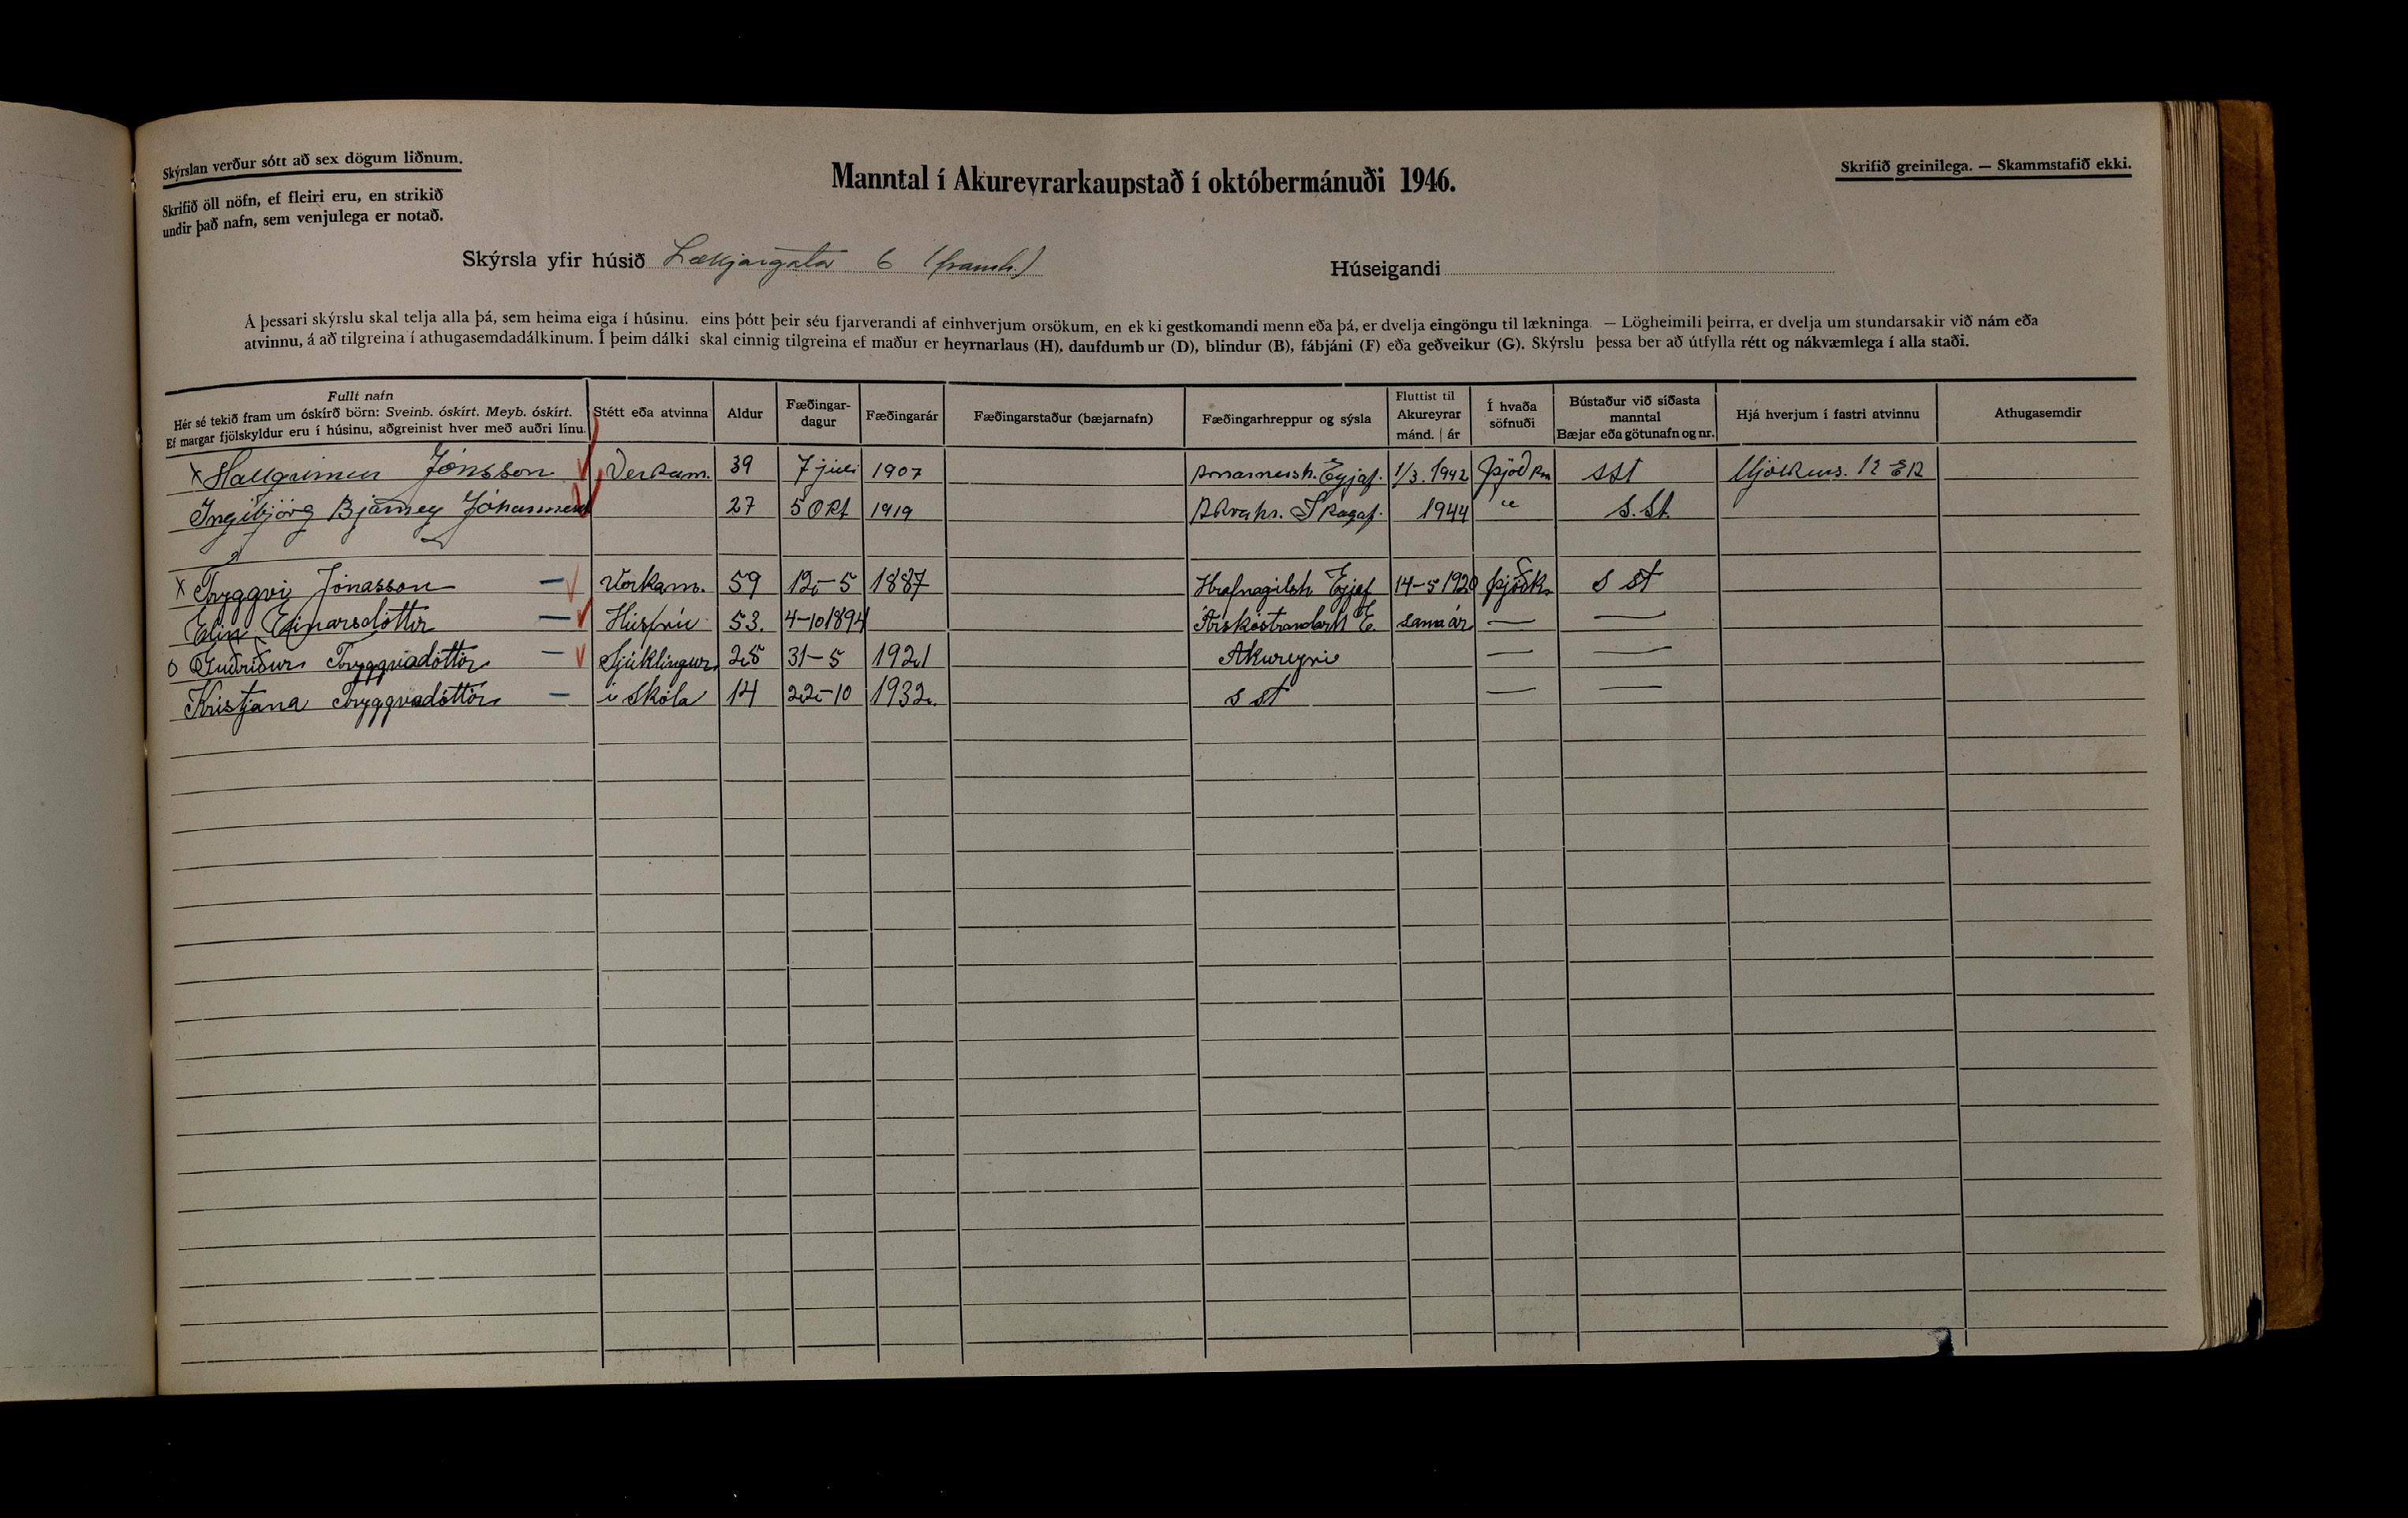 Skýrslan verður sótt að sex dögum liðnum.
Skrifið öll nöfn, ef fleiri eru, en strikið
undir það nafn, sem venjulega er notað.
Manntal í Akureyrarkaupstað í októbermánuði 1946.
Skrifið greinilega. — Skammstafið ekki.
Skýrsla yfir húsið Lækjargata 6 (framh.) Húseigandi
Á þessari skýrslu skal telja alla þá, sem heima eiga í húsinu, eins þótt þeir séu fjarverandi af einhverjum orsökum, en ekki gestkomandi menn eða þá, er dvelja eingöngu til lækninga. — Lögheimili þeirra, er dvelja um stundarsakir við nám eða
atvinnu, á að tilgreina í athugasemdadálkinum. Í þeim dálki skal einnig tilgreina ef maður er heyrnarlaus (H), daufdumbur (D), blindur (B), fábjáni (F) eða geðveikur (G). Skýrslu þessa ber að útfylla rétt og nákvæmlega í alla staði.
Fullt nafn
Hér sé tekið fram um óskírð börn: Sveinb. óskírt. Meyb. óskírt.
Ef margar fjölskyldur eru í húsinu, aðgreinist hver með auðri línu.
Stétt eða atvinna
Aldur
Fæðingar-
dagur
Fæðingarár
Fæðingarstaður (bæjarnafn)
Fæðingarhreppur og sýsla
Fluttist til
Akureyrar
mánd. | ár
Í hvaða
söfnuði
Bústaður við síðasta
manntal
Bæjar eða götunafn og nr.
Hjá hverjum í fastri atvinnu
Athugasemdir
x Hallgrímur Jónsson Verkam. 39 7 júli 1907 Arnarnesh. Eyjaf. 1/3. 1942 Þjóðk sst Mjólkurs. KEA
Ingibjörg Bjarney Jóhannesd 27 5 Okt 1919 Akrahr. Skagaf. 1944 " s.st.
x Tryggvi Jónasson — Verkam. 59 12-5 1887 Hrafnagilsh Eyjaf 14-5 1920 Þjóðk. s st
Elin Einarsdóttir — Húsfrú 53. 4-10 1894 Árskógstrandarh E. sama ár — —
o Guðríður Tryggvadóttir — Sjúklingur 25 31-5 1921 Akureyri — —
Kristjana Tryggvadóttir — í skóla 14 22-10 1932. s st — —